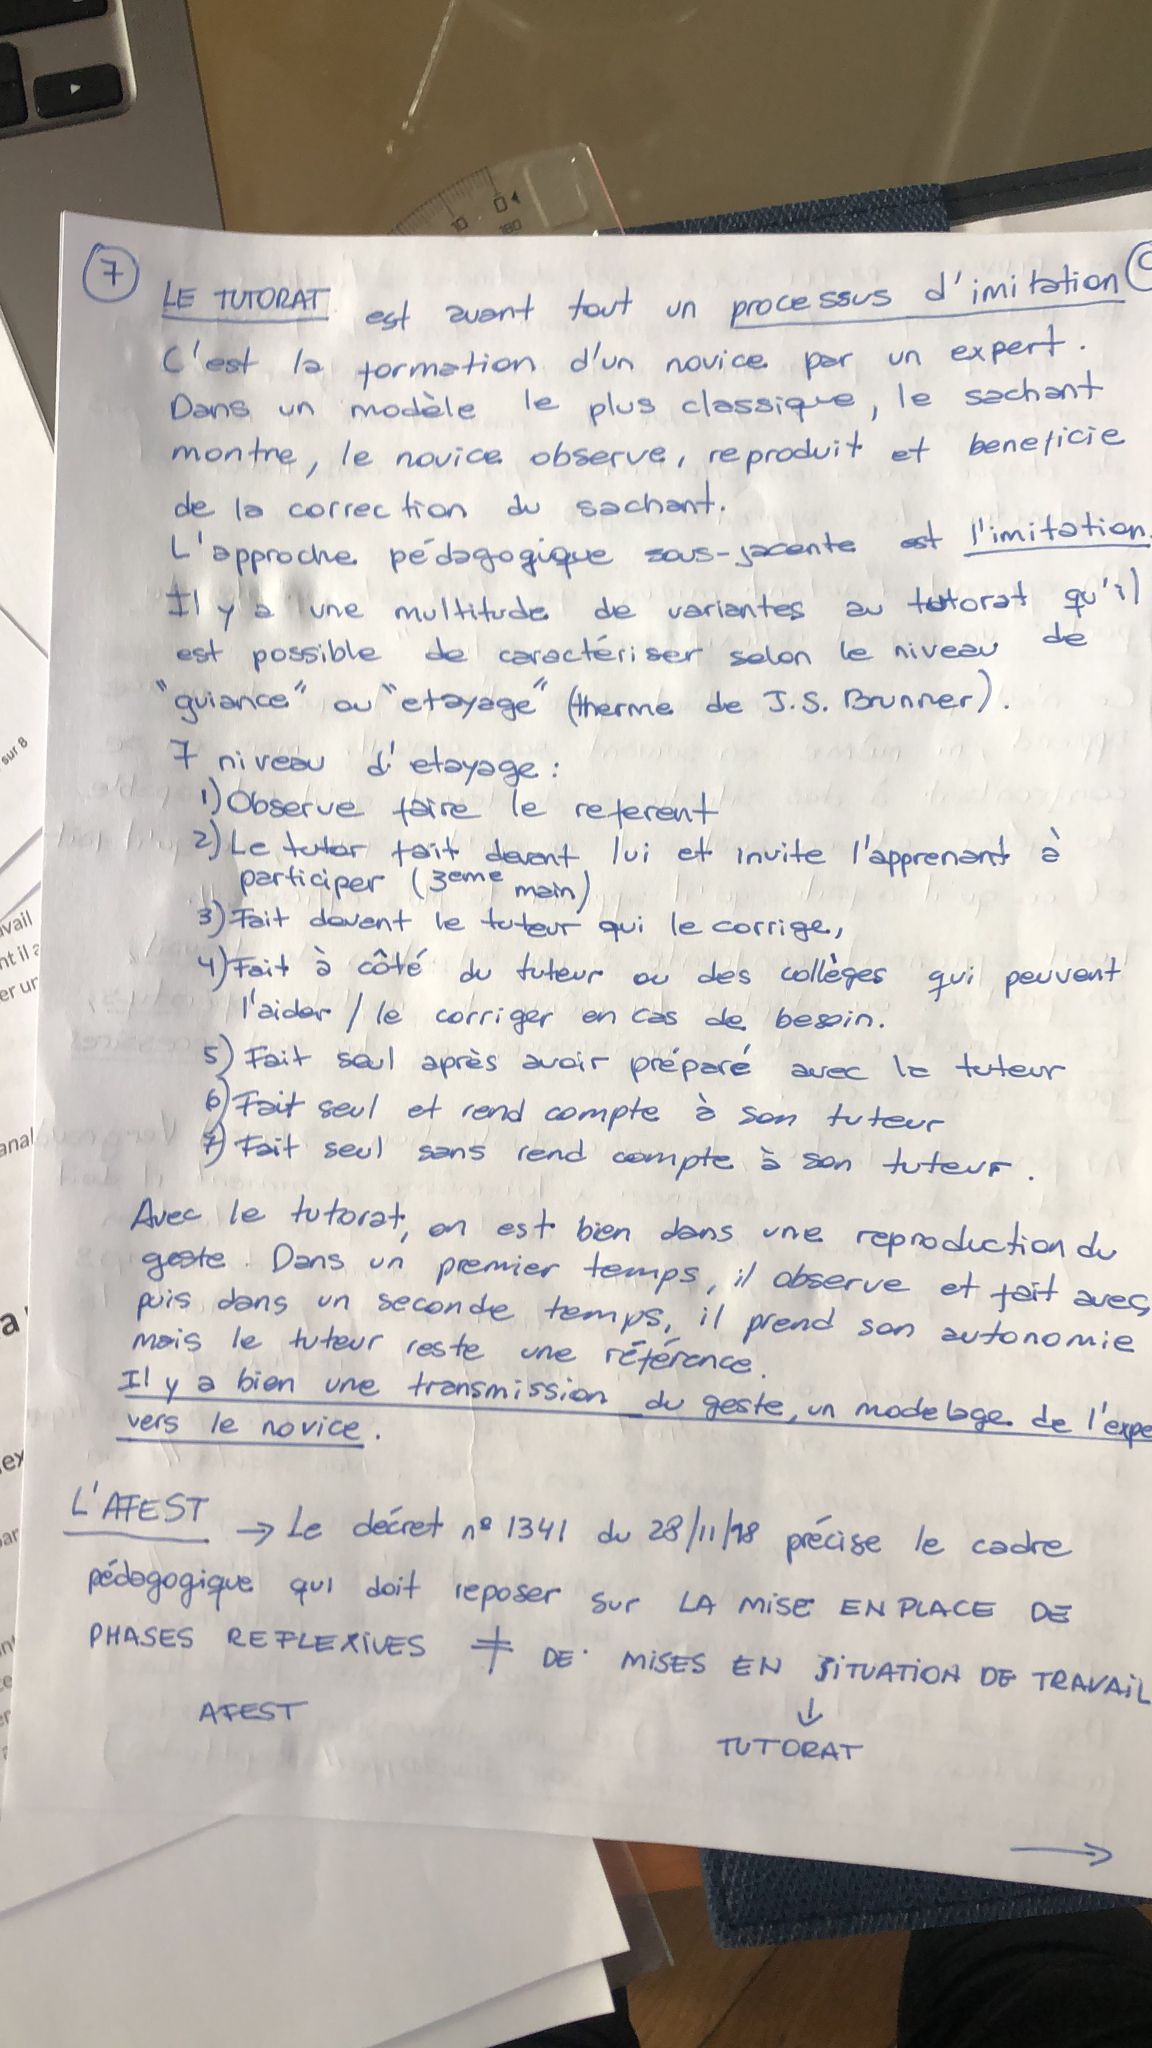 7
LE TUTORAT est avant tout un processus d'imitation
C'est la formation d'un novice par un expert.
Dans un modèle le plus classique, le sachant
montre, le novice observe, reproduit et beneficie
de la correction du sachant.
L'approche pédagogique sous-jacente est l'imitation.
Il y a une multitude de variantes au tutorat qu'il
est possible de caractériser selon le niveau de
"guiance" ou "etayage" (therme de J.S. Brunner).
7 niveau d'etayage :
1) Observe faire le referent
2) Le tutor fait devant lui et invite l'apprenant à
participer (3eme main)
3) Fait devant le tuteur qui le corrige,
4) Fait à côté du tuteur ou des collèges qui peuvent
l'aider / le corriger en cas de besoin.
5) Fait seul après avoir préparé avec le tuteur
6) Fait seul et rend compte à son tuteur
7) Fait seul sans rend compte à son tuteur.
Avec le tutorat, on est bien dans une reproduction du
geste. Dans un premier temps, il observe et fait avec,
puis dans un seconde temps, il prend son autonomie
mais le tuteur reste une référence.
Il y a bien une transmission du geste, un modelage de l'expe
vers le novice.
L'AFEST → Le décret nº 1341 du 28/11/18 précise le cadre
pédagogique qui doit reposer sur LA MISE EN PLACE DE
PHASES REFLEXIVES ≠ DE MISES EN SITUATION DE TRAVAIL
AFEST ↓
TUTORAT
→
sur 8
avail
nt il a
er un
anal
a
10 0
180